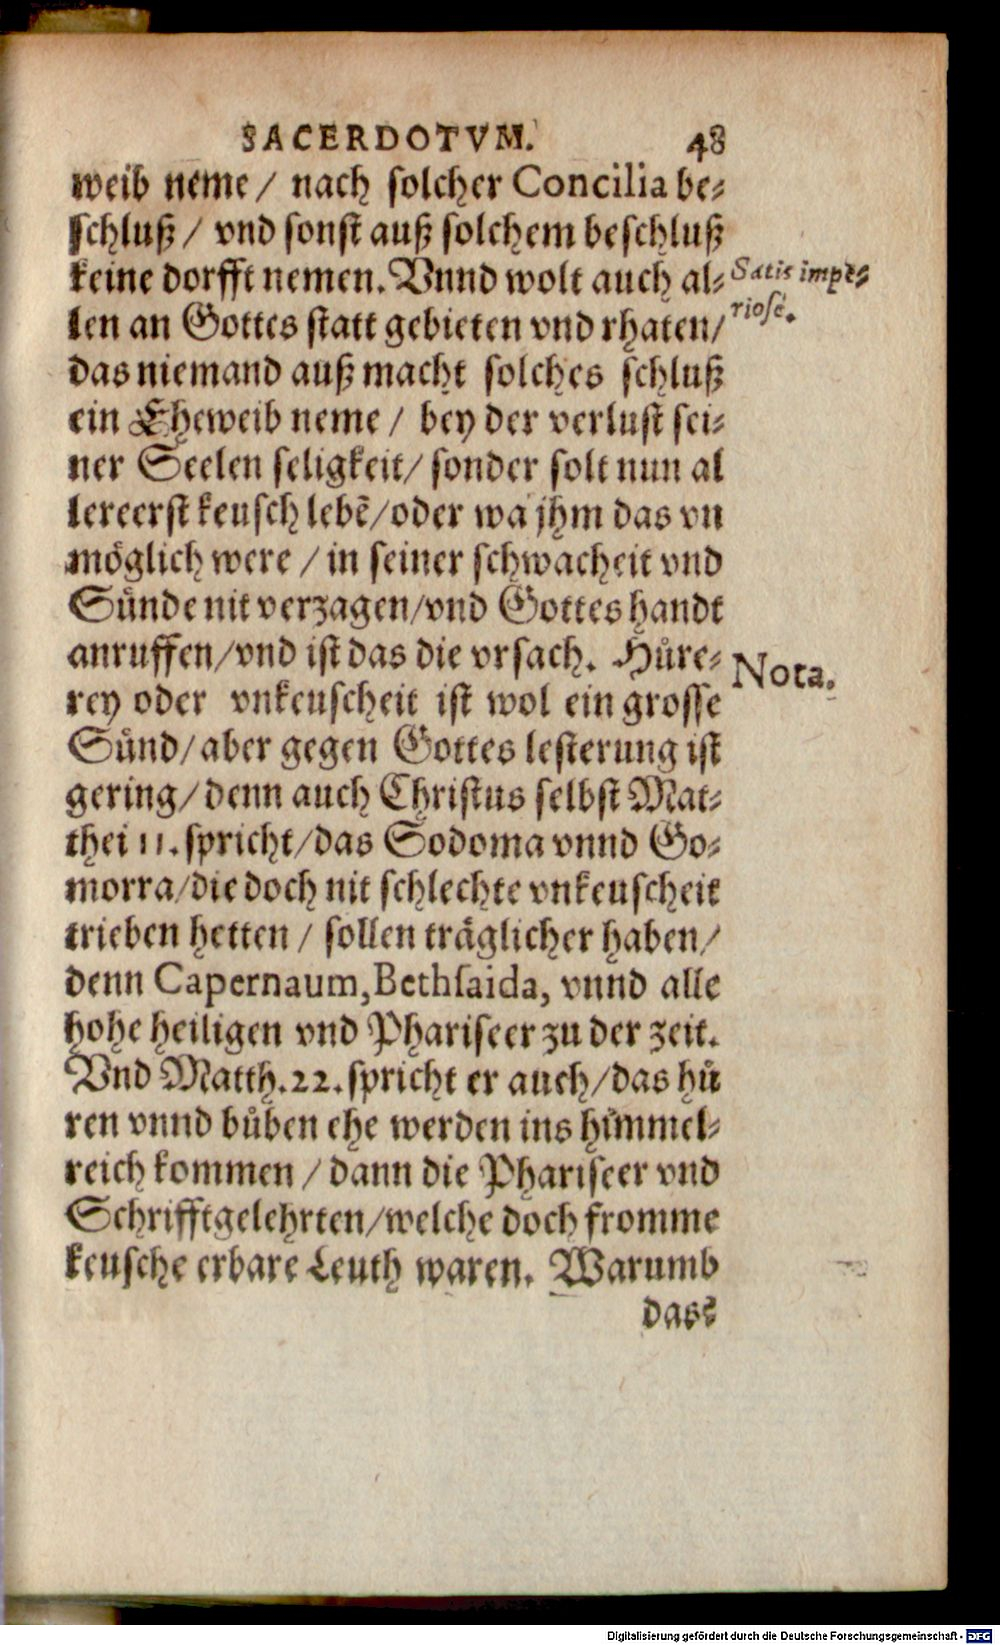 SACERDOTVM. 48
weib neme / nach solcher Concilia be-
schluß / vnd sonst auß solchem beschluß
keine dorfft nemen. Vnnd wolt auch al-
Satis impe-
riosè.
len an Gottes statt gebieten vnd rhaten/
das niemand auß macht solches schluß
ein Eheweib neme / bey der verlust sei-
ner Seelen seligkeit/ sonder solt nun al
lereerst keusch lebē/oder wa jhm das vn
möglich were / in seiner schwacheit vnd
Sünde nit verzagen/vnd Gottes handt
anruffen/vnd ist das die vrsach. Hůre-
Nota.
rey oder vnkeuscheit ist wol ein grosse
Sünd/aber gegen Gottes lesterung ist
gering/denn auch Christus selbst Mat-
thei 11. spricht/das Sodoma vnnd Go-
morra/die doch nit schlechte vnkeuscheit
trieben hetten / sollen träglicher haben/
denn Capernaum, Bethsaida, vnnd alle
hohe heiligen vnd Phariseer zu der zeit.
Vnd Matth.22. spricht er auch/das hů
ren vnnd bůben ehe werden ins himmel-
reich kommen / dann die Phariseer vnd
Schrifftgelehrten/welche doch fromme
keusche erbare Leuth waren. Warumb
das-
Digitalisierung gefördert durch die Deutsche Forschungsgemeinschaft - DFG